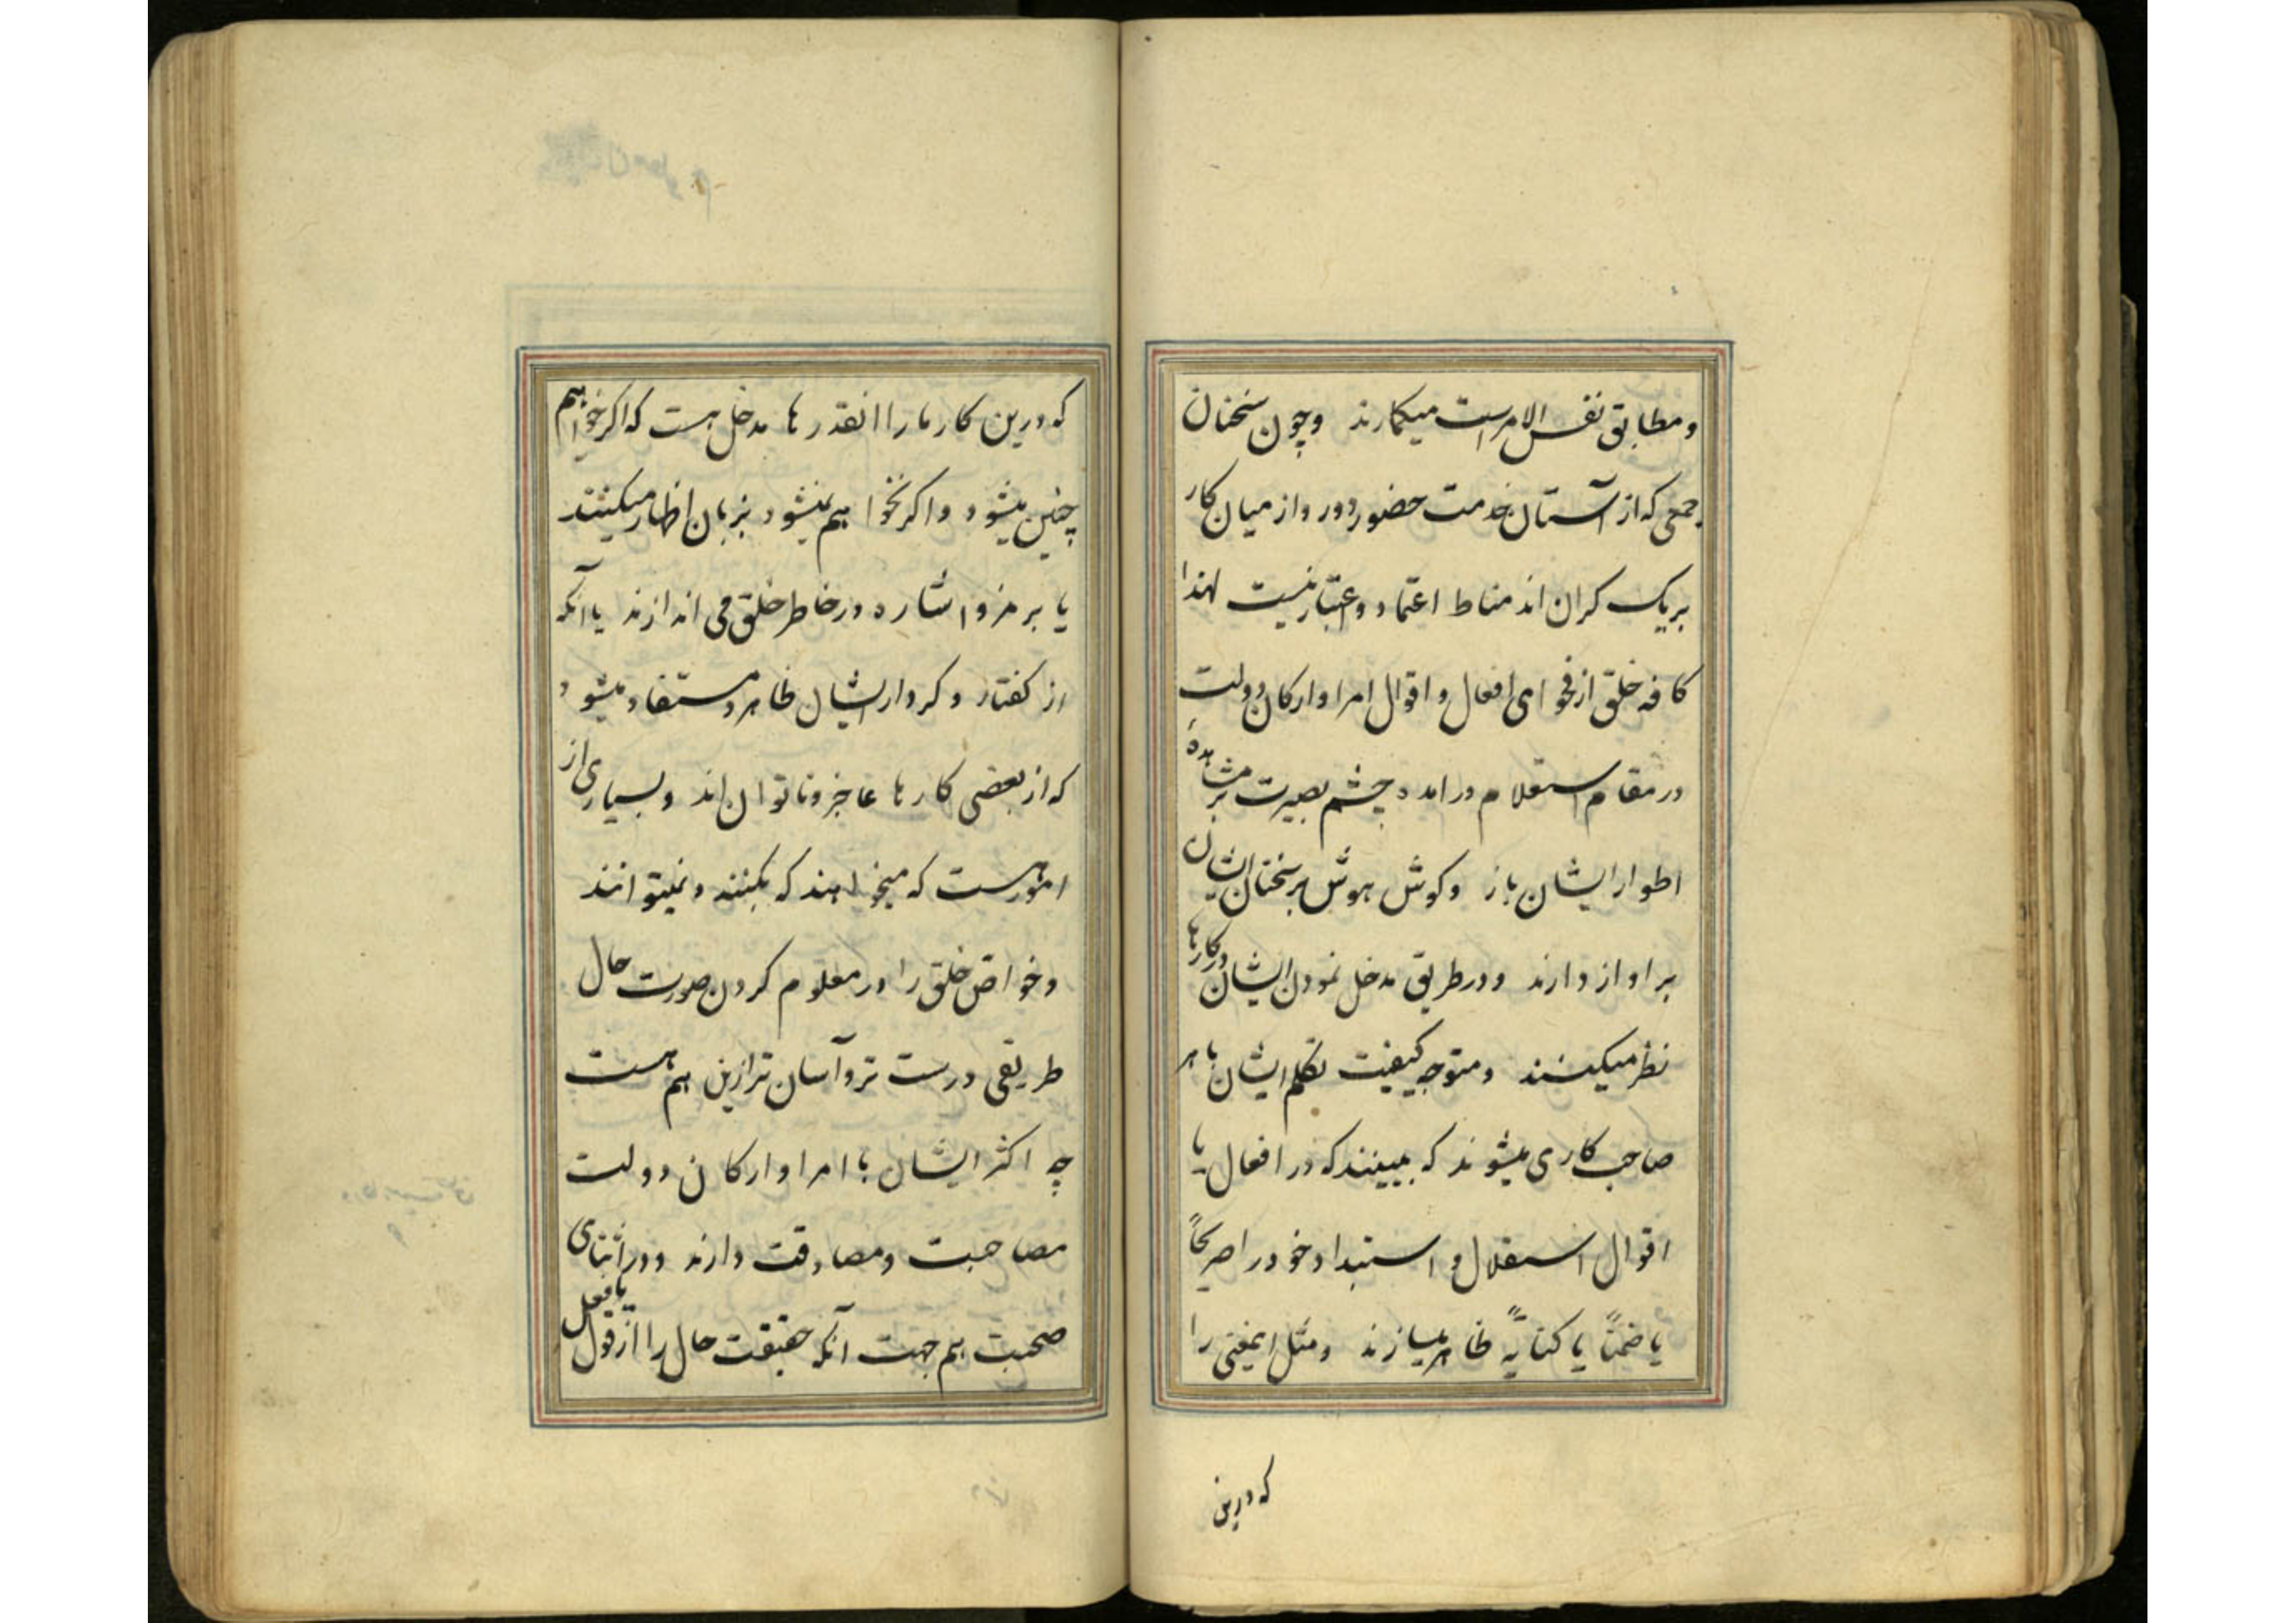 و مطابق نفس الامرست میکمارند و چون سخنان
جمعی که از آستان خدمت حضور دور و از میان کار
بریک کران اند مناط اعتماد و اعتبار نیست لهذا
کافه خلق از فحوای افعال و اقوال امرا و ارکان دولت
در مقام استعلام درامده چشم بصیرت بر مشاهدهٔ
اطوار ایشان باز و کوش هوش بر سخنان ایشان
بر اواز دارند و در طریق مدخل نمودن ایشان در کارها
نظر میکنند و متوجه کیفیت تکلم ایشان با هر
صاحب کاری میشوند که ببینند که در افعال یا
اقوال استقلال و استبداد خود را صریحاً
یا ضمناً یا کنایةً ظاهر میسازند و مثل اینمعنی را
که درین
که درین کار مارا انقدرها مدخل هست که اکر خواهیم
چنین میشود و اکر نخواهیم نمیشود بزبان اظهار میکنند
یا برمز و اشاره در خاطر خلق می اندازند یا آنکه
از کفتار و کردار ایشان ظاهر و مستفاد میشود
که از بعضی کارها عاجز و ناتوان اند و بسیاری از
امور هست که میخواهند که بکنند و نمیتوانند
و خواص خلق را در معلوم کردن صورت حال
طریقی درست تر و آسان تر ازین هم هست
چه اکثر ایشان با امرا و ارکان دولت
مصاحبت و مصادقت دارند و در اثنای
صحبت هم جهت آنکه حقیقت حال را از قول یا فعل